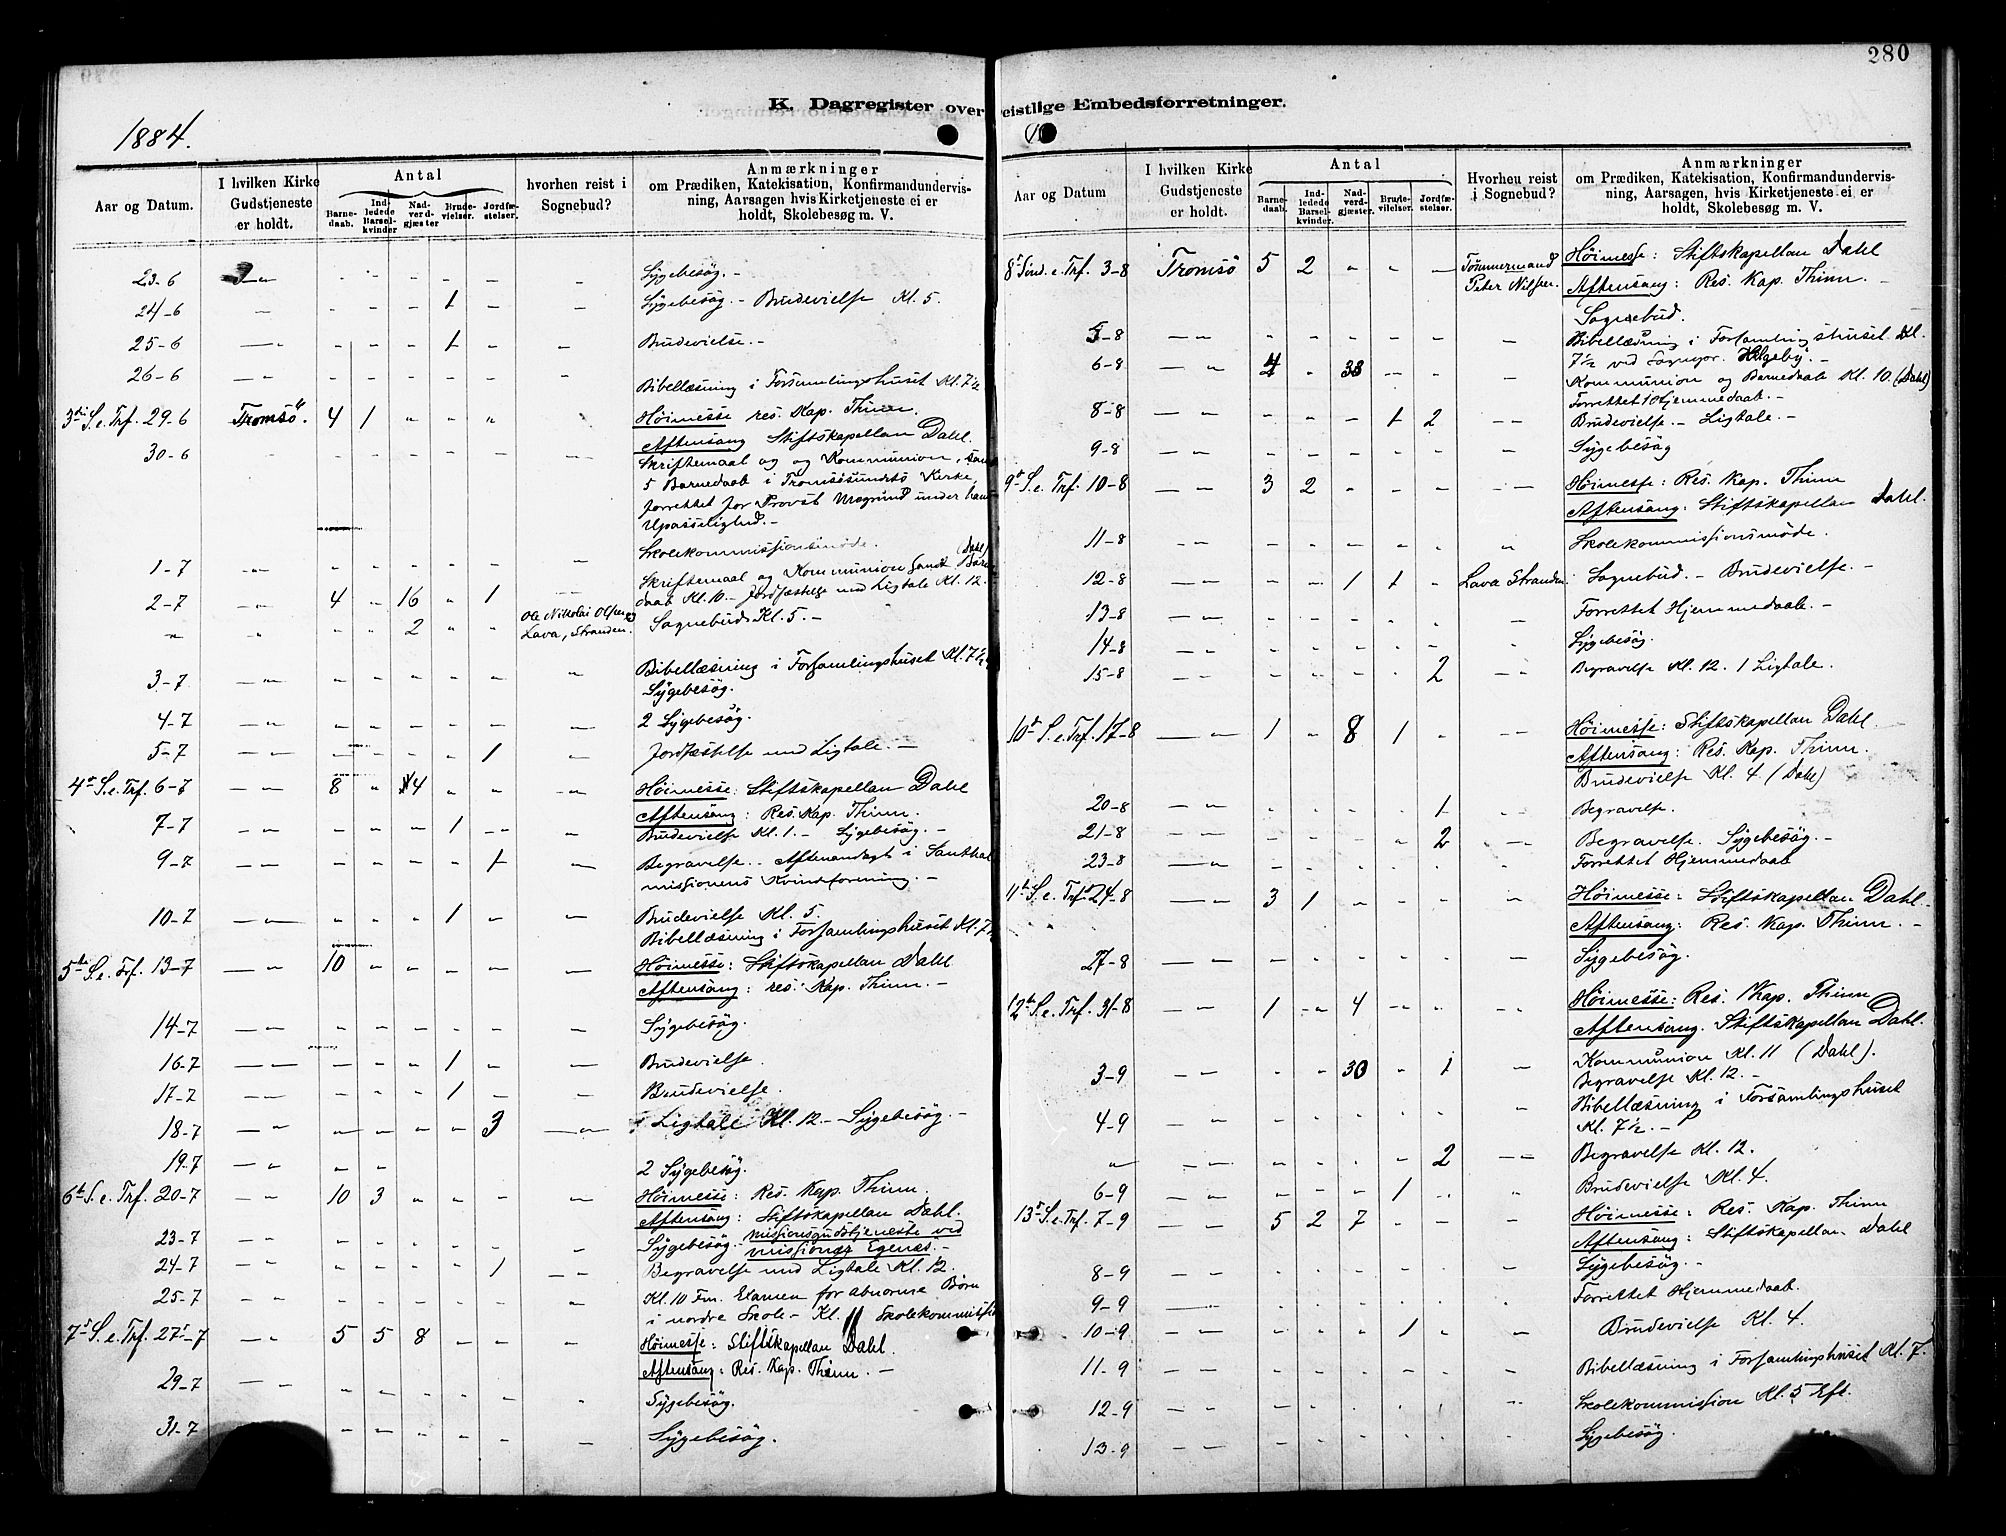 280
K. Dagregister over
1884.
Aar og Datum.
I hvilken Kirke
Gudstjeneste
er holdt.
Antal
Barne-
daab.
Ind-
ledede
Barsel-
kvinder
Nad-
verd-
gjæster
Brude-
vielser.
Jordfæ-
stelser.
hvorhen reist i
Sognebud?
Anmærkninger
om Prædiken, Katekisation, Konfirmandundervis-
ning, Aarsagen hvis Kirketjeneste ei er
holdt, Skolebesøg m. V.
23-6 Sygebesøg. -
24-6 1 Sygebesøg. - Brudevielse Kl. 5.
25-6 1 Brudevielse. -
26-6 Bibellæsning i Forsamlingshuset Kl. 7½
3die S. e. Trf. 29-6 Tromsø. 4 1 Høimesse res. Kap. Thinn.
Aftensang Stiftskapellan Dahl.
30-6 Skriftemaal og og Kommunion, samt
5 Barnedaab i Tromsøsundets Kirke,
forrettet for Provst Magnus under hans
Upasselighed. -
1-7 Skolekommissionsmøde. (Dahl)
2-7 4 16 1 Skriftemaal og Kommunion samt Barne
daab Kl. 10. - Jordfæstelse med Ligtale Kl. 12.
2 Ole Nikolai Olsen og
Lava, Stranden. Sognebuds Kl. 5. -
3-7 Bibellæsning i Forsamlingshuset Kl. 7½
Sygebesøg.
4-7 2 Sygebesøg.
5-7 1 Jordfæstelse med Ligtale. -
4de S. e. Trf. 6-7 8 14 Høimesse: Stiftskapellan Dahl
Aftensang: Res. Kap. Thinn.
7-7 1 Brudevielse Kl. 1. - Sygebesøg. -
9-7 1 Begravelse. - Aftenandagt i Santhal
missionens Kvindeforening. -
10-7 1 Brudevielse Kl. 5.
Bibellæsning i Forsamlingshuset Kl. 7½
5te S. e. Trf. 13-7 10 Høimesse: Stiftskapellan Dahl
Aftensang: res. Kap. Thinn. -
14-7 Sygebesøg.
16-7 1 Brudevielse.
17-7 1 Brudevielse.
18-7 3 Ligtale Kl. 12 - Sygebesøg. -
19-7 2 Sygebesøg.
6te S. e. Trf. 20-7 10 3 Høimesse: Res. Kap. Thinn.
Aftensang: Stiftskapellan Dahl.
23-7 Sygebesøg. - Missionsgudstjeneste ved
missionær Egenes. -
24-7 1 Begravelse med Ligtale Kl. 12.
25-7 Kl. 10 Fm. Examen for abnorme Børn
i nordre Skole - Kl. 11 Skolekommission
7de S. e. Trf. 27-7 5 5 8 Høimesse: Stiftskapellan Dahl.
Aftensang: Res. Kap. Thinn. -
29-7 Sygebesøg.
31-7 Sygebesøg.
eistlige Embedsforretninger.
Aar og Datum
I hvilken Kirke
Gudstjeneste
er holdt.
Antal
Barne-
daab.
Ind-
ledede
Barsel-
kvinder
Nad-
verd-
gjæster
Brude-
vielser.
Jordfæ-
stelser.
Hvorheu reist
i Sognebud?
Anmærkninger
om Prædiken, Katekisation, Konfirmandundervis-
ning, Aarsagen, hvis Kirketjeneste ei er
holdt, Skolebesøg m. V.
8de Sønd. e. Trf. 3-8 Tromsø 5 2 Tømmermand
Peter Nilsen. Høimesse: Stiftskapellan Dahl
Aftensang: Res. Kap. Thinn. -
Sognebud.
5-8 Bibellæsning i Forsamlingshuset Kl.
7½ ved Sognepr. Helgeby. -
6-8 4 38 Kommunion og Barnedaab Kl. 10. (Dahl)
Forrettet 1 Hjemmedaab. -
8-8 1 2 Brudevielse. - Ligtale. -
9-8 Sygebesøg
9de S. e. Trf. 10-8 3 2 Høimesse: Res. Kap. Thinn
Aftensang: Stiftskapellan Dahl.
11-8 Skolekommissionsmøde.
12-8 1 1 Lava Stranden. Sognebud. - Brudevielse. -
13-8 Forrettet Hjemmedaab. -
14-8 Sygebesøg.
15-8 2 Begravelse Kl. 12. 1 Ligtale.
10de S. e. Trf. 17-8 1 8 1 Høimesse: Stiftskapellan Dahl.
Aftensang: Res. Kap. Thinn.
Brudevielse Kl. 4. (Dahl)
20-8 1 Begravelse.
21-8 2 Begravelse. Sygebesøg. -
23-8 Forrettet Hjemmedaab
11te S. e. Trf. 24-8 3 1 Høimesse: Stiftskapellan Dahl. -
Aftensang: Res. Kap. Thinn. -
27-8 Sygebesøg.
12te S. e. Trf. 31-8 1 4 Høimesse: Res. Kap. Thinn
Aftensang. Stiftskapellan Dahl.
3-9 30 1 Kommunion Kl. 11 (Dahl).
Begravelse Kl. 12. -
4-9 Bibellæsning i Forsamlingshuset
Kl. 7½. -
2 Begravelse Kl. 12.
6-9 1 Brudevielse Kl. 4.
13de S. e. Trf. 7-9 5 2 7 Høimesse: Res. Kap. Thinn
Aftensang: Stiftskapellan Dahl
8-9 Sygebesøg. -
9-9 Forrettet Hjemmedaab.
10-9 1 Brudevielse Kl. 4.
11-9 Bibellæsning i Forsamlingshuset Kl. 7.
12-9 Skolekommission Kl. 5 Eft.
13-9 Sygebesøg.